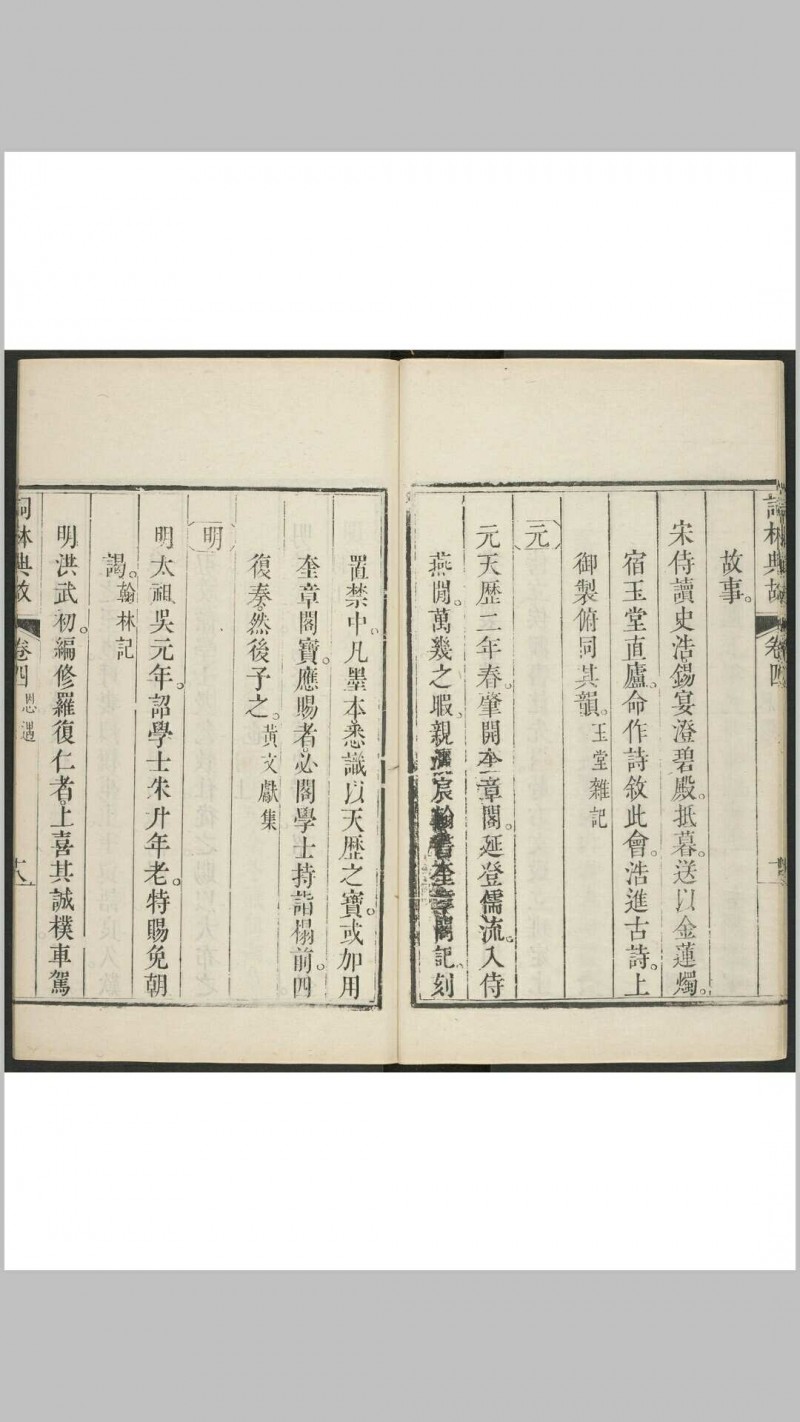 詞林典故 卷四
故事。
宋侍讀史浩錫宴澄碧殿。抵暮。送以金蓮燭。
宿玉堂直廬。命作詩敘此會。浩進古詩。上
御製俯同其韻。玉堂雜記
元
元天歷二年春。肇開奎章閣。延登儒流。入侍
燕閒。萬幾之暇。親灑宸翰。書奎章閣記。刻
置禁中。凡墨本悉識以天歷之寶。或加用
奎章閣寶。應賜者。必閣學士持詣榻前。四
復奏。然後予之。黃文獻集
明
明太祖吳元年。詔學士朱升年老。特賜免朝
謁。翰林記
明洪武初。編修羅復仁者。上喜其誠樸。車駕
詞林典故 卷四 恩遇 十八